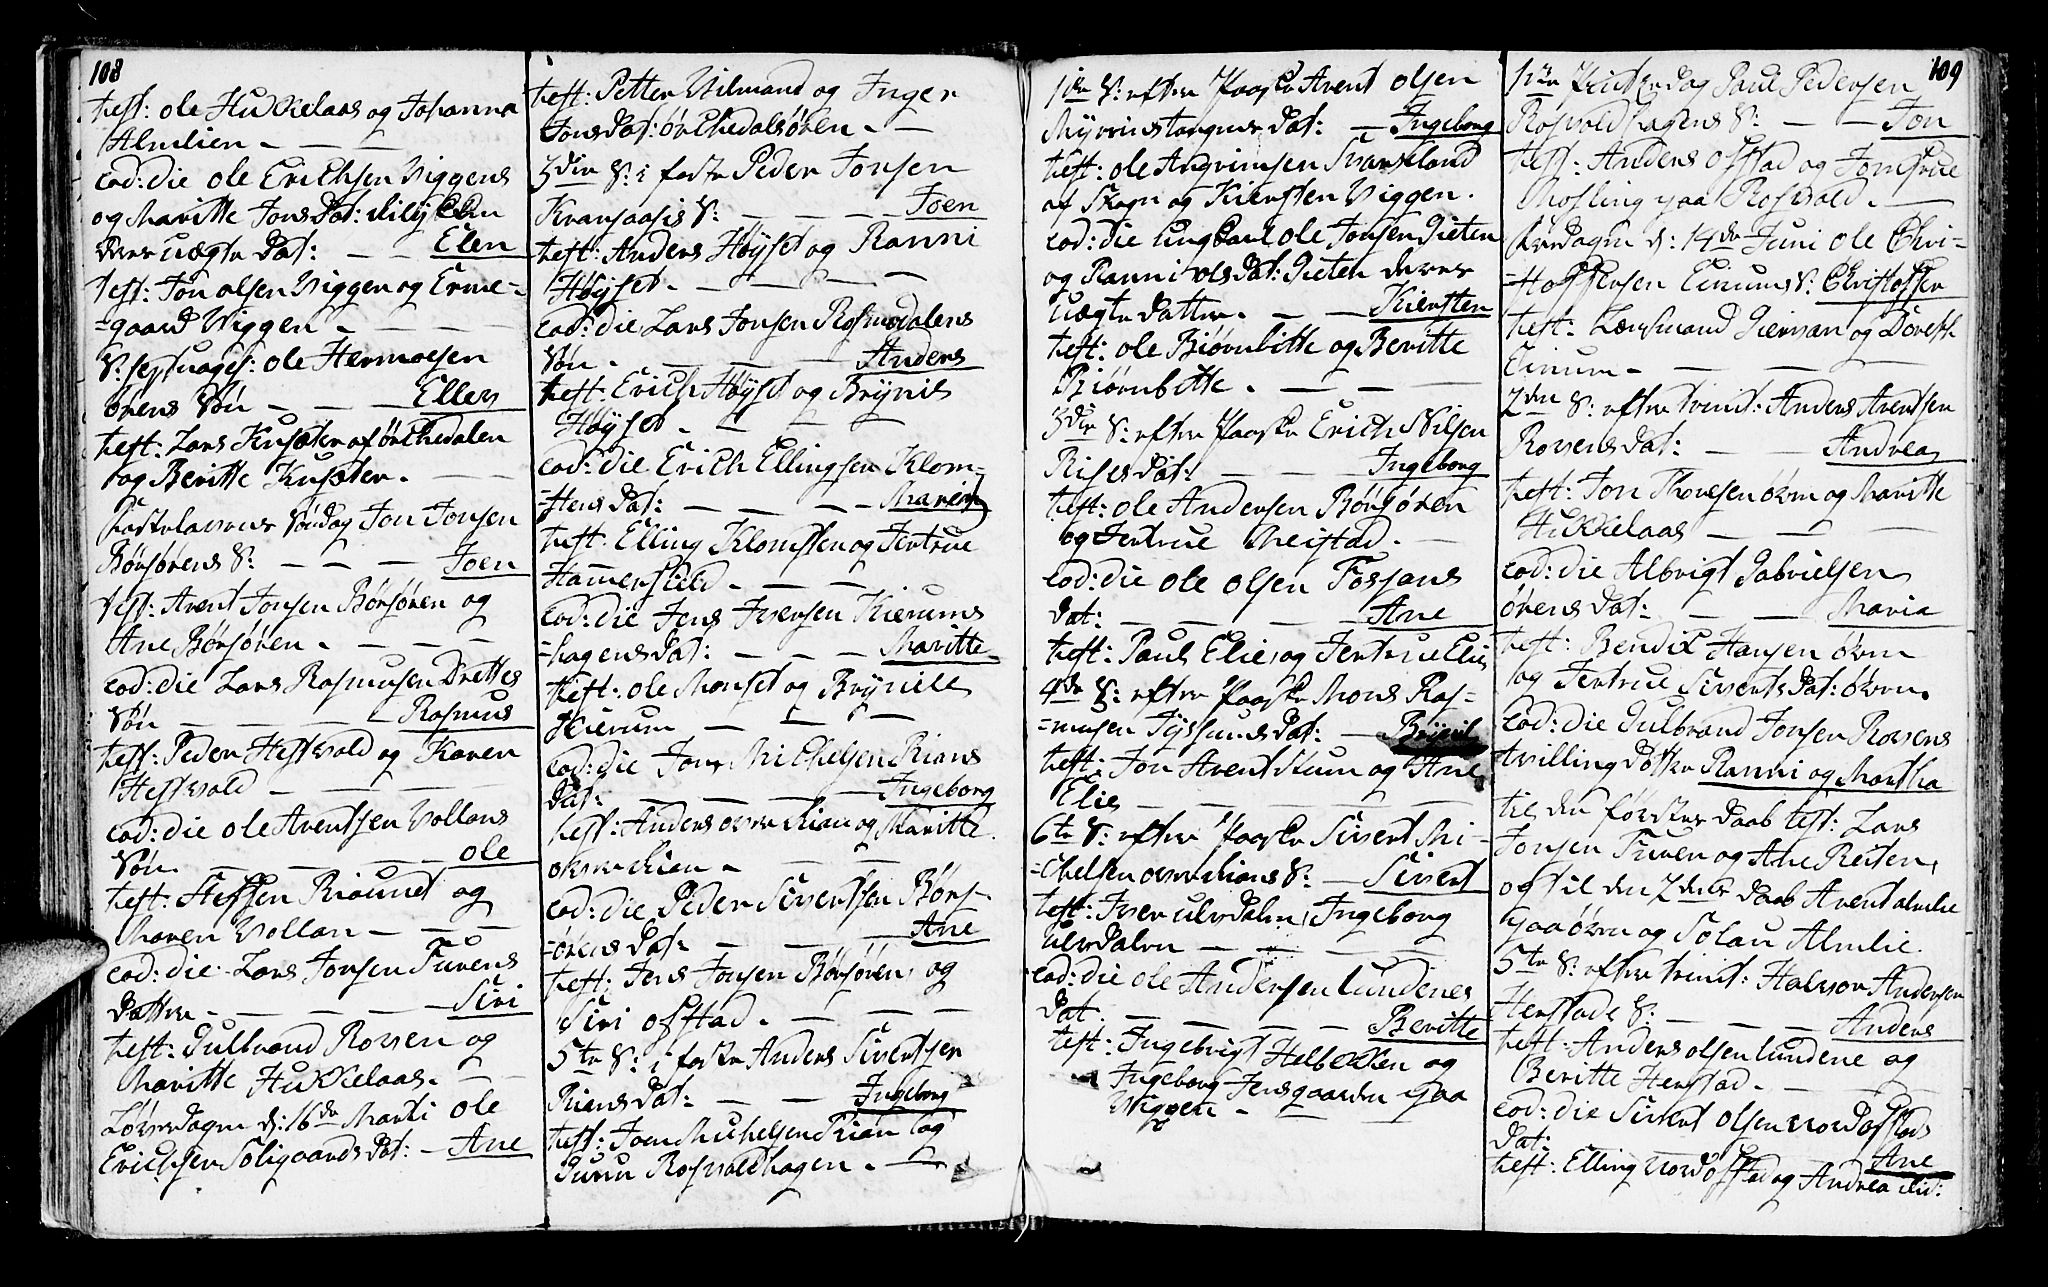 108
test: ole Hukkelaas og Johanna
Almlien
eod: die ole Erichsen Viggens
og Maritte JonsDat:
deres uægte Dat: Elen
test: Jon olsen Viggen og Erme-
-gaard Viggen
S: septuages: ole Hermoesen
ørens Søn Ellev
test: Lars Kusten af ørchedalen
og Beritte Kusten.
Fastelavens Søndag Jon Jonsen
Børsørens S: Joen
test: Arent Jonsen Børsøren og
Ane Børsøren.
eod: die Lars Rasmusen Brettes
Søn Rasmus
test: Peder Hestvold og Karen
Hestvold
eod: die ole Arentsen Vollans
Søn. ole
test: Steffen Riaunet og
Maren Vollan
eod: die Lars Jonsen Furens
Datter Siri
test: Gulbrand Rossen og
Maritte Hukkelaas.
Løverdagen d: 16de Marti ole
Erichsen Soligaards Dat: Ane
test: Petter Vilmand og Inger
JonsDat: ørchedalsøren.
3die S: i faste Peder Jonsen
Kraasaasis S: Joen
test: Anders Høyset og Ranni
Høyset
eod: die Lars Jonsen Rosmodalens
Søn Anders
test: Erich Høyset og Brynil
Høyset
eod: die Erich Ellingsen Klom-
-stens Dat: Marit
test: Elling Klomsten og Jertrue
Hammerskild.
eod: die Jens Iversen Kierums
-hagens Dat: Maritte
test: ole Monset og Brynild
Kierum
eod: die Jon Michelsen Rians
Dat: Ingeborg
test: Anders øvre Rian og Maritte
øvre Rian
eod: die Peder Sivertsen Børs-
-ørens Dat: Ane
test: Jens Jonsen Børsøren og
Siri ofstad.
5te S: i faste Anders Sivertsen
Rians Dat: Ingeborg
test: Joen Michelsen Rian og
Guru Rosvoldhagen.
1ste S: efter Paaske Arent olsen
Myrrestangens Dat: Ingeborg
test: ole Angrimsen Svaveland
af Skogn og Kiersten Viggen.
eod: die ungkarl ole Jonsen Gieten
og Ranni olsDat: Gieten deres
uægte Datter Kiersten
test: ole Biørnbette og Beritte
Biørnbette
3die S: efter Paaske Erich Nilsen
Rises Dat: Ingeborg
test: ole Andersen Børsøren
og Jertrue Meistad.
eod: die ole olsen Fossans
Dat: Ane
test: Paul Elie og Jertrue Elie
4de S: efter Paaske Mons Ras-
-musen Gyssunds Dat: Brynil
test: Jon Arent Skum og Ane
Elie
6te S: efter Paaske Sivert Mi-
-chelsen øvre Rians S: Sivert
test: Iver Uvsdalen, Ingeborg
Uvsdalen
eod: die ole Andersen lundenes
Dat. Beritte
test: Ingebrigt Helbekken og
Ingeborg Jensgaarden paa
Viggen
109
1ste Pintzedag Paul Pedersen
Rosvoldhagens S: Jon
test: Anders ofstad og Jertrue
Mosling paa Rosvold.
Fredagen d: 14de Juni ole Chri-
-stoffersen Einums S: Christoffer
test: Lensmand Giersan og Doreth
Einum
2den S: efter trinit: Anders Arentsen
Rossens Dat: Andrea
test: Jon Thoresen øren og Maritte
Hukkelaas
eod: die Albrigt Gabrielsen
ørens Dat: Maria
test: Bendix Hansen øren
og Jertrue SivertsDat: øren.
eod: die Gulbrand Jonsen Rossens
tvilling Døttre Ranni og Martha
til den førstes daab test: Lars
Jonsen Furen og Ane Reiten,
og til den 2dens daab Arent Almlie
paa øren og Solau Almlie.
5te S: efter trinit: Halvor Andersen
Herstads S: Anders
test: Anders olsen lundene og
Beritte Herstad.
eod: die Sivert olsen nordofstads
Dat: Ane
test: Elling nordofstad og Andrea ibid: